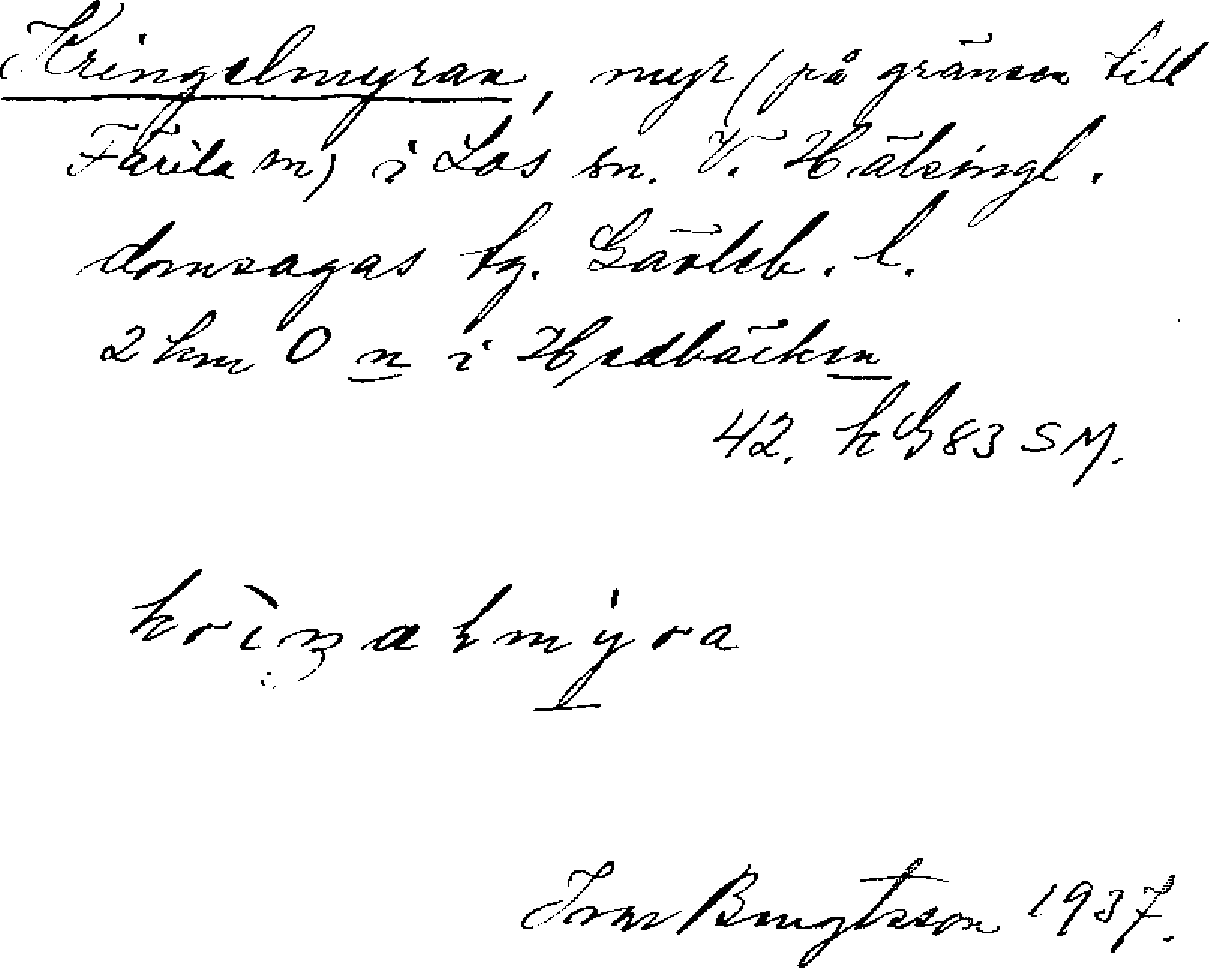 Kringelmyran, myr (på gränsen till
Färila sn) i Los sn. V. Hälsingl.
domsagas tg. Gävleb. l.
2 km O n i Hedbäcken
42. k G 83 SM.
krìŋalmy̍ra
Ivar Bengtsson 1937.